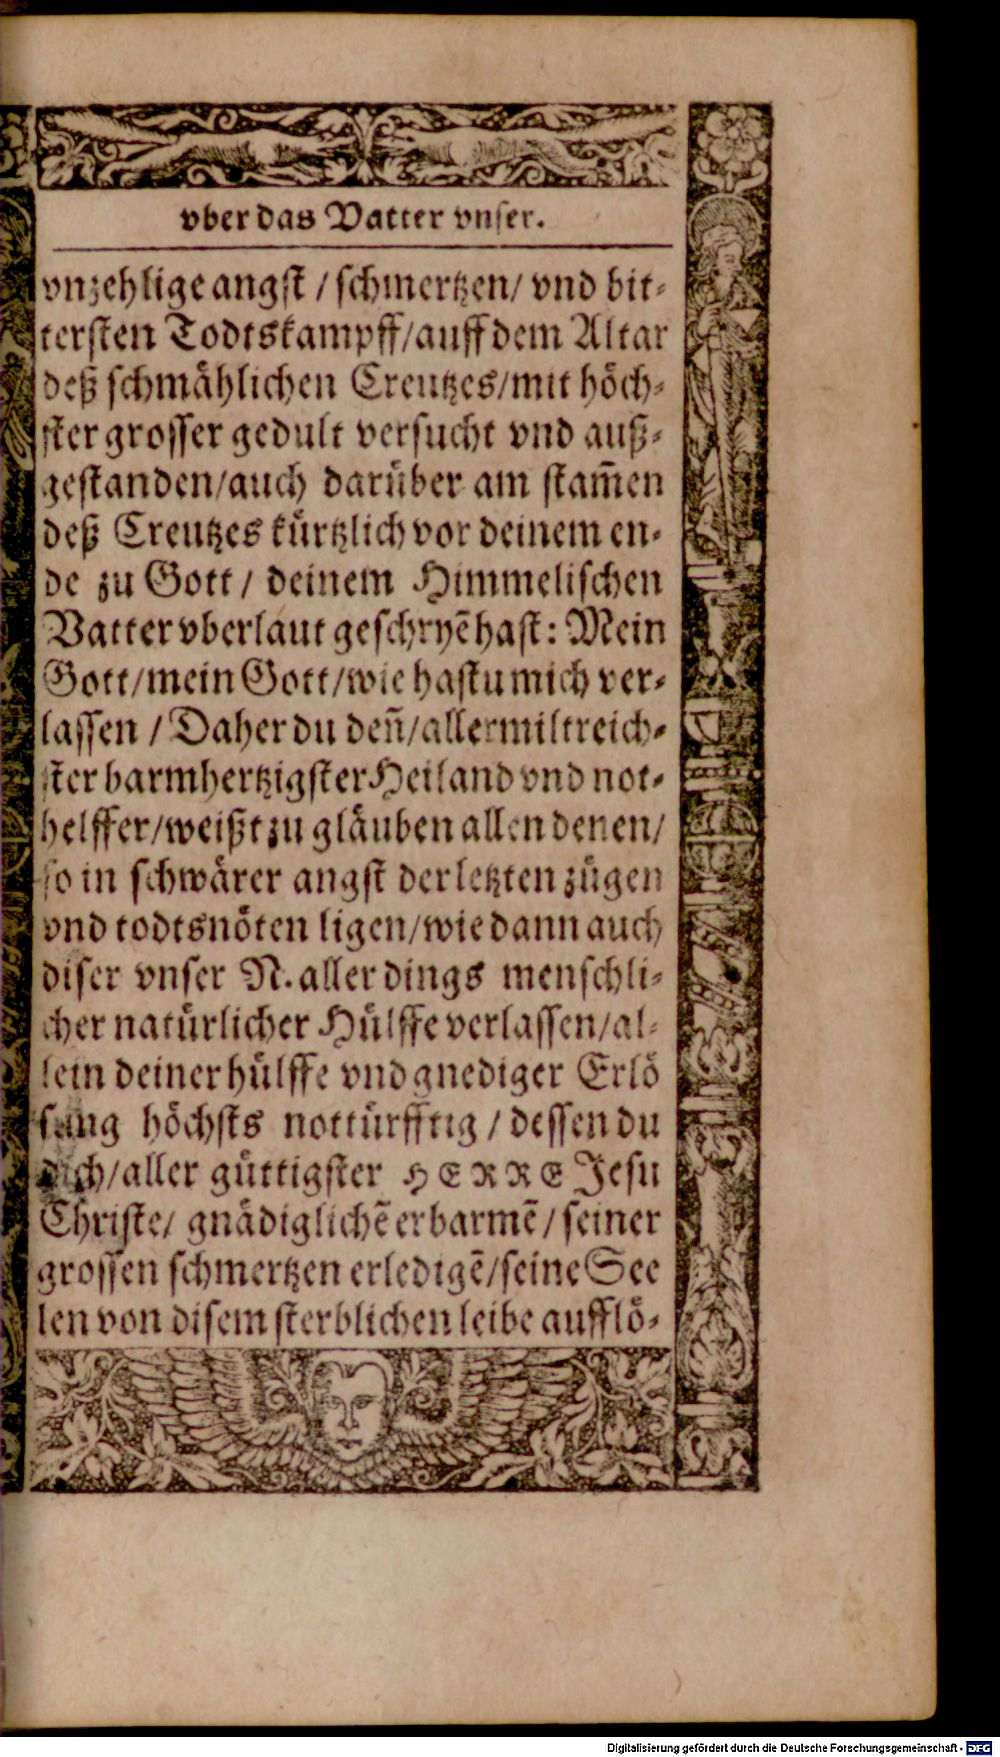 vber das Vatter vnser.
vnzehlige angst / schmertzen/ vnd bit-
tersten Todtskampff/auff dem Altar
deß schmählichen Creutzes/mit höch-
ster grosser gedult versucht vnd auß-
gestanden/auch darüber am stam̃en
deß Creutzes kürtzlich vor deinem en-
de zu Gott / deinem Himmelischen
Vatter vberlaut geschryẽ hast: Mein
Gott/mein Gott/wie hastu mich ver-
lassen / Daher du deñ/allermiltreich-
ster barmhertzigster Heiland vnd not-
helffer/weißt zu gläuben allen denen/
so in schwärer angst der letzten zügen
vnd todtsnöten ligen/wie dann auch
diser vnser N. aller dings menschli-
cher natürlicher Hülffe verlassen/al-
lein deiner hülffe vnd gnediger Erlö
sung höchsts nottürfftig / dessen du
dich/aller güttigster HERRE Jesu
Christe/ gnädiglichẽ erbarmẽ/seiner
grossen schmertzen erledigẽ/seine See
len von disem sterblichen leibe aufflö-
Digitalisierung gefördert durch die Deutsche Forschungsgemeinschaft - DFG